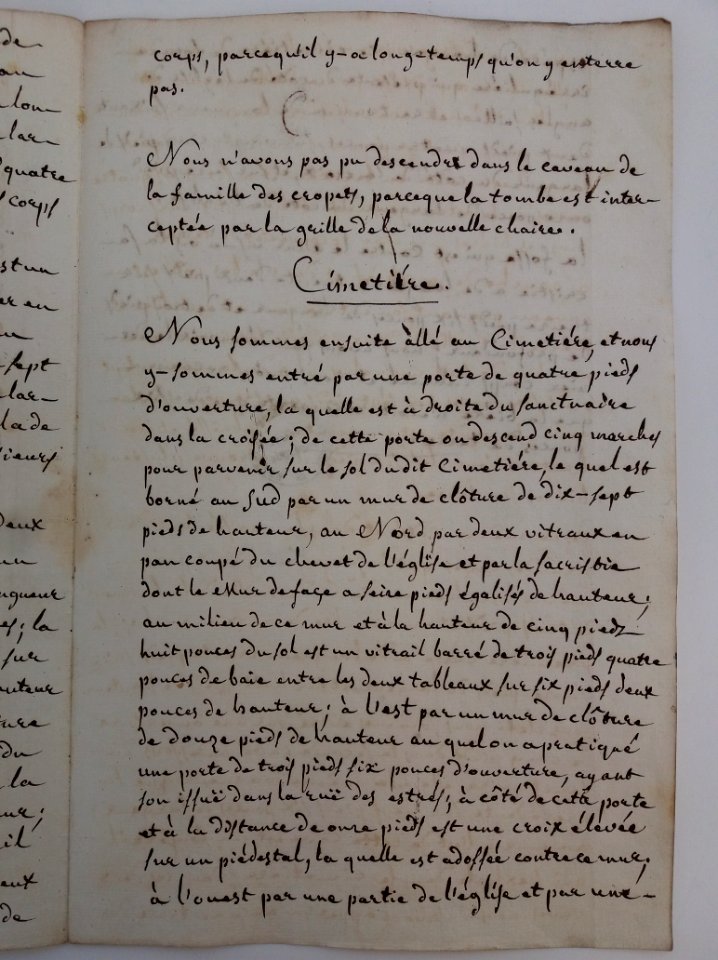 de
au
lon-
lar-
quatre
corps
est un
er en
un
-sept
lar-
la de
sieurs
deux
un
ngueur
es; la
sur
auteur
ture
du
la
eur;
il
eux
de
corps, parcequ'il y-a longstemps qu'on y enterre
pas.
Nous n'avons pas pu descendre dans le caveau de
la famille des cropets, parceque la tombe est inter-
ceptée par la grille de la nouvelle chaire.
Cimetiére.
Nous sommes ensuite àllé au Cimetiére, et nous
y-sommes entré par une porte de quatre pieds
d'ouverture, la quelle est à droite du sanctuaire
dans la croisée; de cette porte on descend cinq marches
pour parvenir sur le sol du dit Cimetiére, le quel est
borné au Sud par un mur de clôture de dix-sept
pieds de hauteur, au Nord par deux vitraux en
pan coupé du chevet de l'église et par la sacristie
dont le Mur de façe a seire pieds égalisés de hauteur;
au milieu de ce mur et à la hauteur de cinq pieds
huit pouces du sol est un vitrail barré de trois pieds quatre
pouces de baie entre les deux tableaux sur six pieds deux
pouces de hauteur; à l'est par un mur de clôture
de douze pieds de hauteur au quel on a pratiqué
une porte de trois pieds six pouces d'ouverture, ayant
son issuë dans la ruë des estrés; à côté de cette porte
et à la distance de onre pieds est une croix élevée
sur un piédestal, la quelle est adossée contre ce mur;
à l'ouest par une partie de l'église et par une-